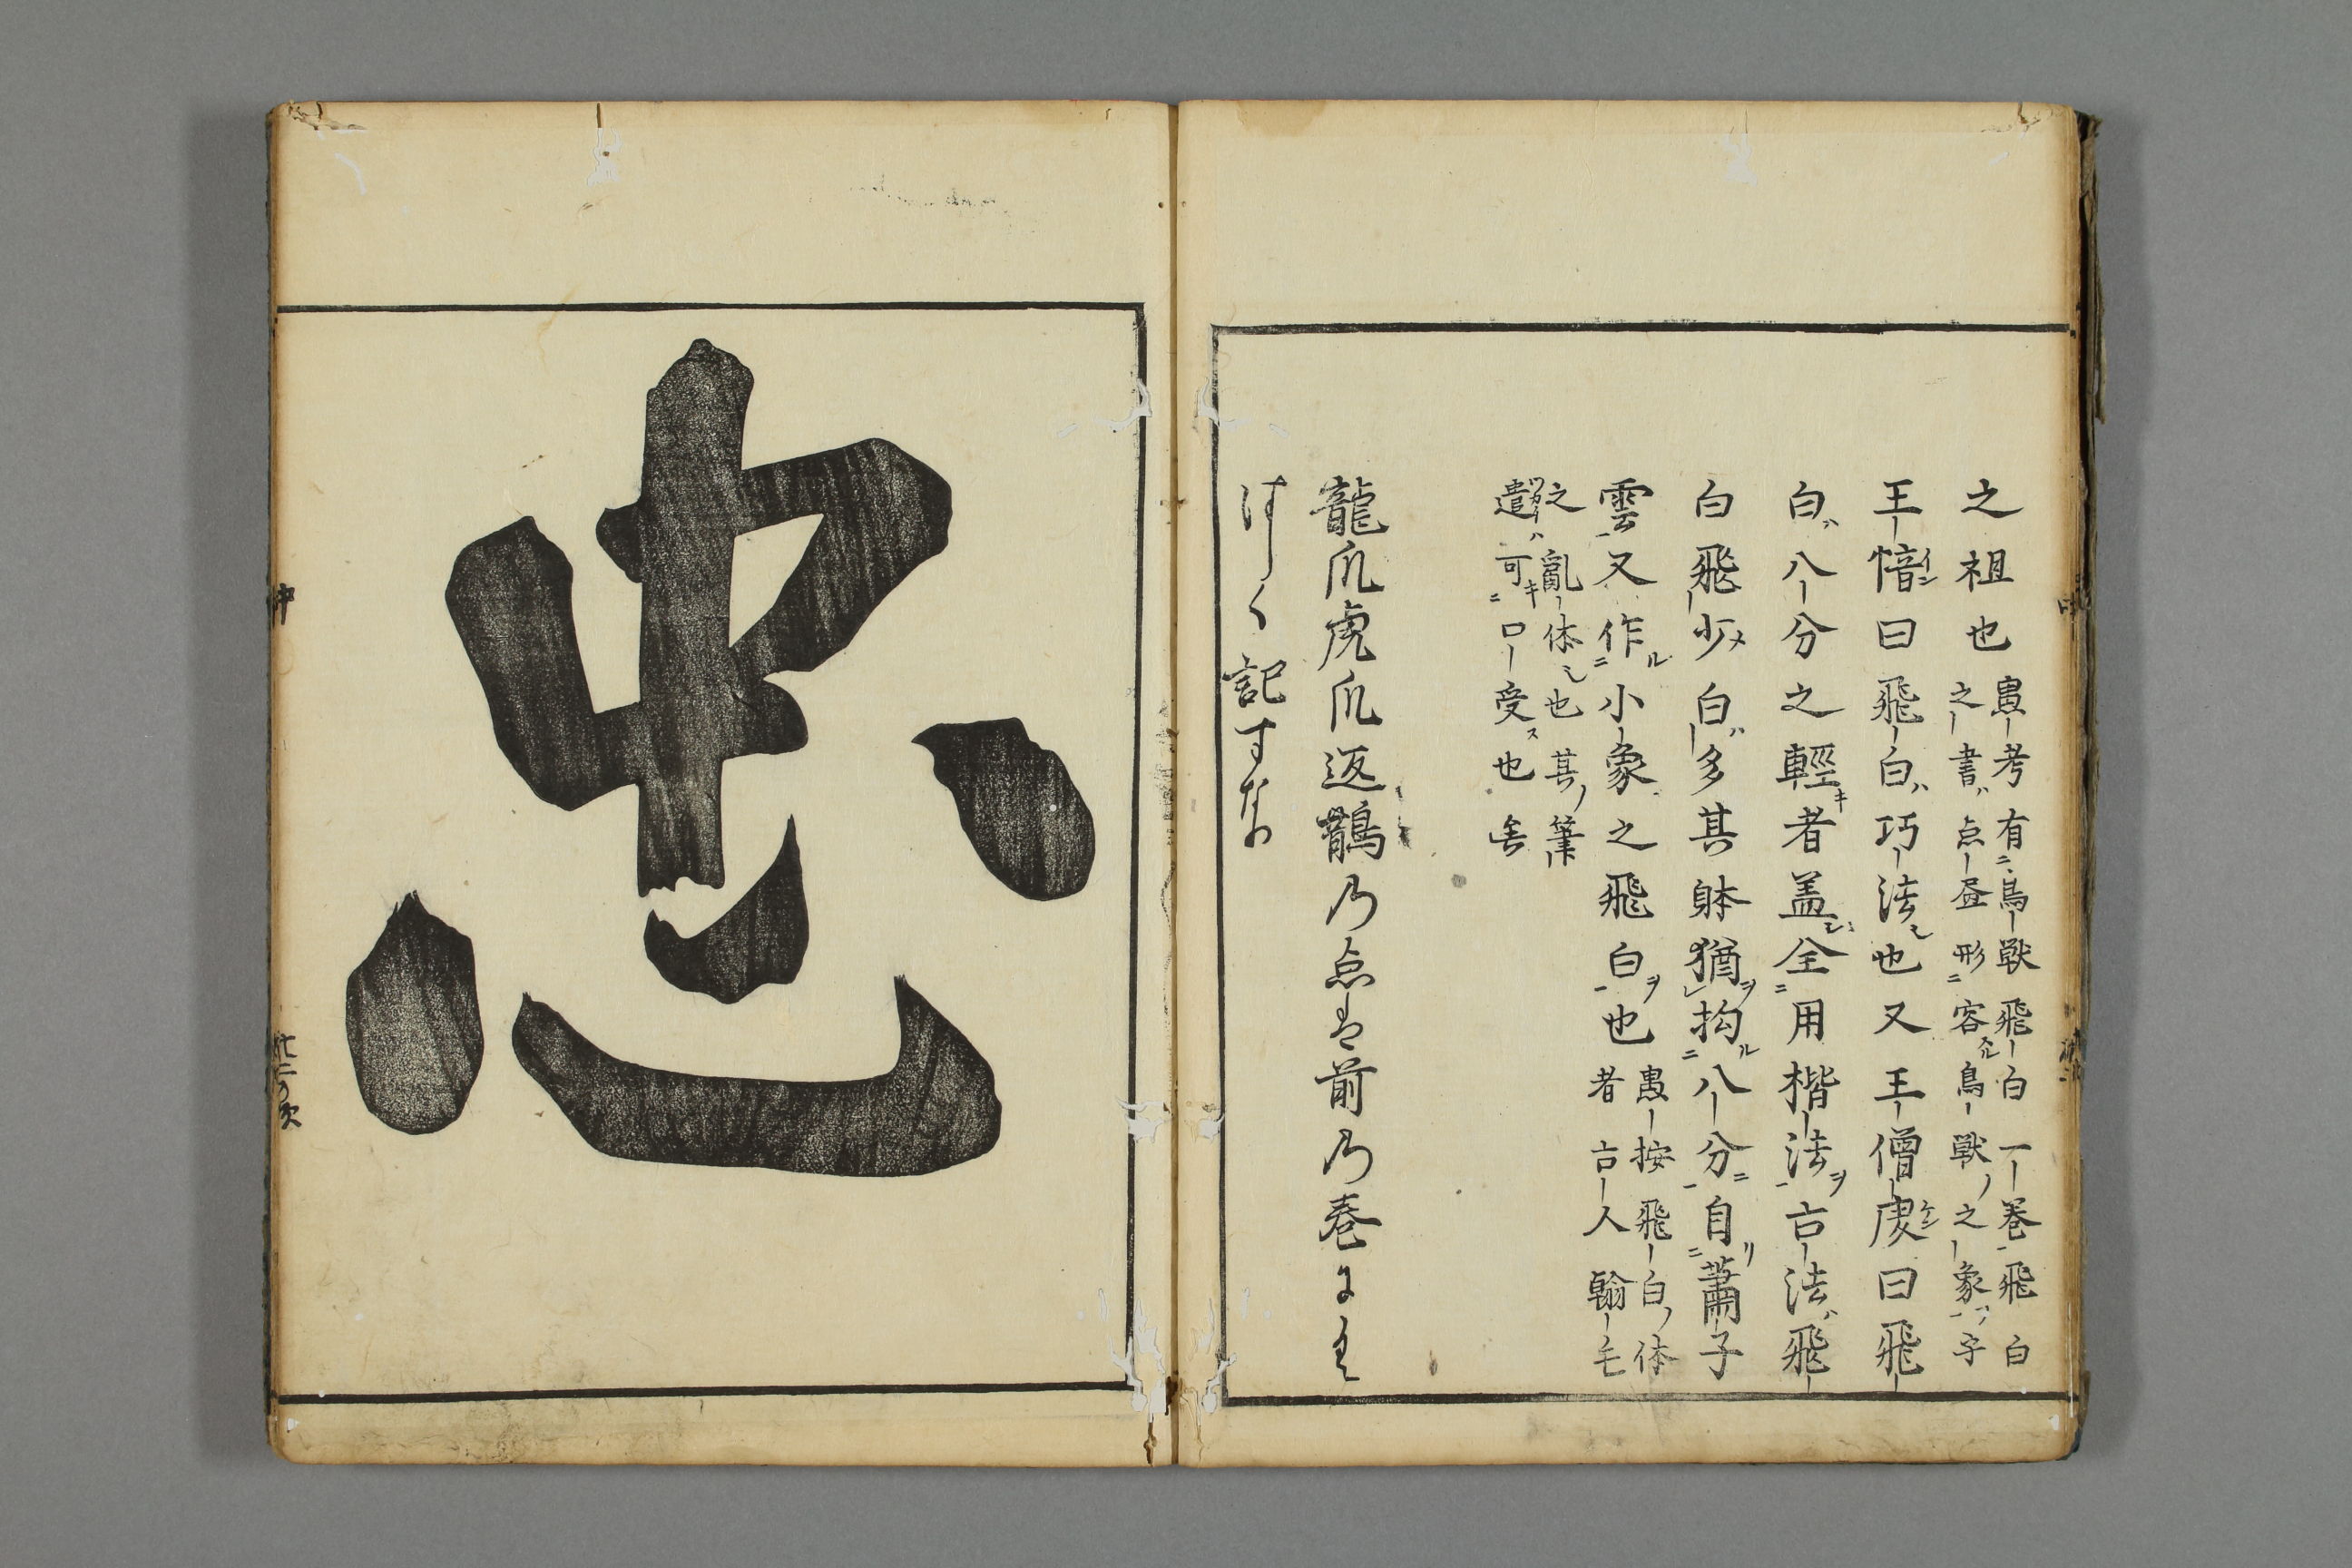 之祖也
愚考有鳥獣飛白一巻飛白
之書点昼形容鳥獣之象字
王愔曰飛白巧法也又王僧虔曰飛
白八分之輕者盖全用楷法古法飛
白飛少白多其躰猶拘八分自蕭子
雲又作小象之飛白也
愚按飛白体
者古人翰毛
之亂体也其筆
遣可口受也舎
龍爪虎爪返鵲乃点は前乃巻にく
はしく記すなり
忠